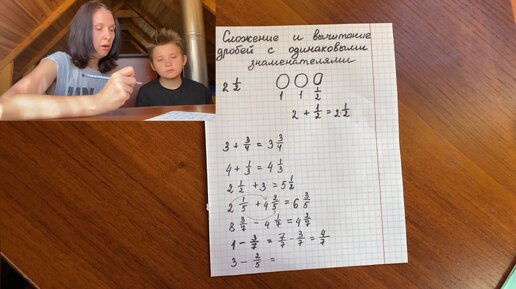 Сложение и вычитание
дробей с одинаковыми
знаменателями
2 1/2
1 1 1/2
2 + 1/2 = 2 1/2
3 + 3/4 = 3 3/4
4 + 1/3 = 4 1/3
2 1/2 + 3 = 5 1/2
2 1/5 + 4 2/5 = 6 3/5
8 3/7 - 4 1/7 = 4 2/7
1 - 3/7 = 7/7 - 3/7 = 4/7
3 - 2/5 =